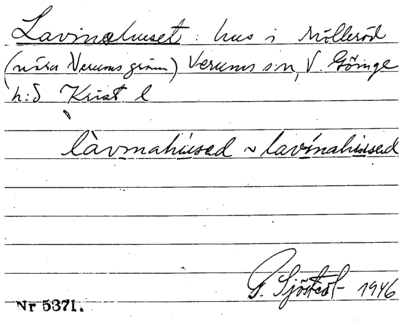 Lavinahuset: hus i Mölleröd
(nära Verums gräns) Verums sn, V. Göinge
h:d Krist l
làvinahùsed ~ lavínahùsed
G. Sjöstedt 1946
Nr 5371.